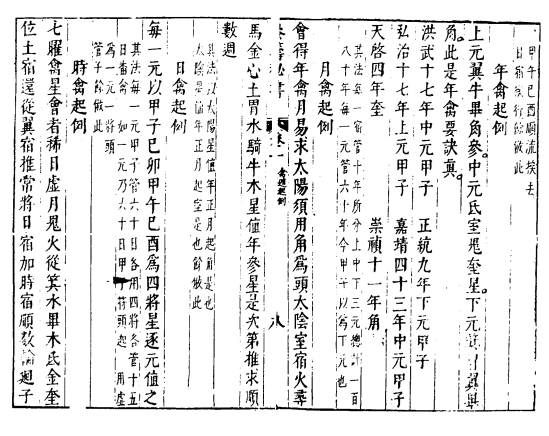 甲午巳酉順流挨去
日宿歌行餘倣此
年禽起例
上元翼牛畢角參中元氐室鬼奎星下元箕翼
角此是年禽要訣真
洪武十七年中元甲子 正統九年下元甲子
弘治十七年上元甲子 嘉靖四十三年中元甲子
天啓四年奎 崇禎十一年角
其法每一宿管十年所分上中下三元總計一百
八十年每一元管六十年今甲子以爲下元也
月禽起例
會得年禽月易求太陽須用角爲頭太陰室宿火尋
卷一 禽遁起例 八
馬金心土胃水騎牛木星值年參星是次第推求順
數週
其法以太陽星值年正月起角是也
太陰星值年正月起室是也餘倣此
日禽起例
每一元以甲子己卯甲午己酉爲四將星逐元值之
其法每一元甲子管六十日各用四將各管十五
日番禽如一元乃六十日甲將頭起用虛
爲一元一將頭
管子餘倣此
時禽起例
七曜禽星會者稀日虛月鬼火從箕水畢木氐金奎
位土宿還從翼宿推常將日宿加時宿順數輪迴子